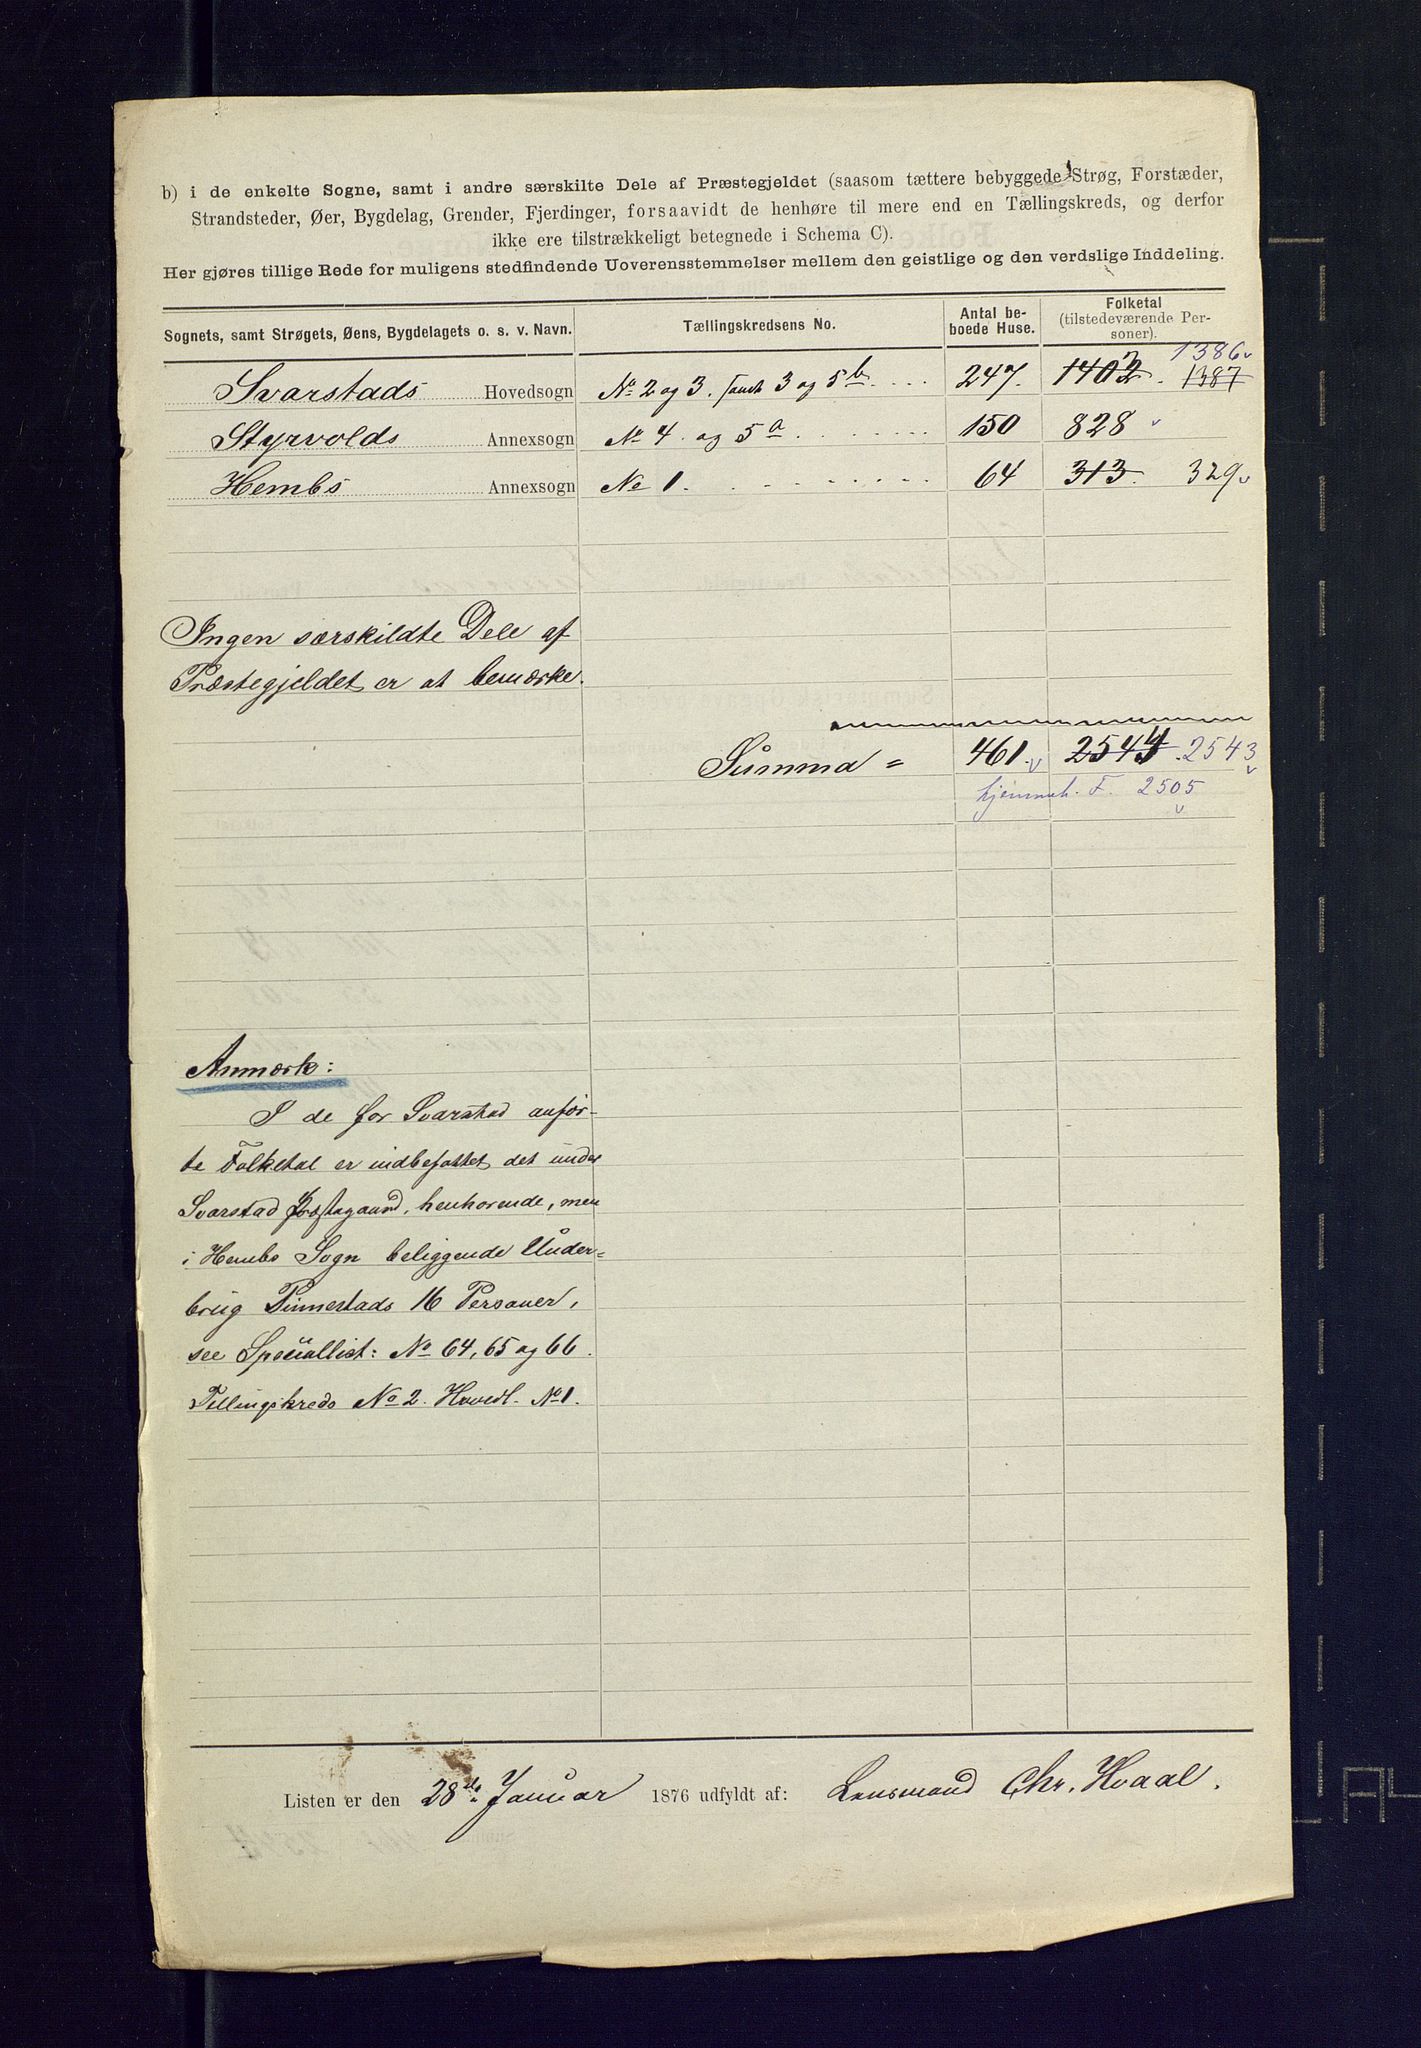 b) i de enkelte Sogne, samt i andre særskilte Dele af Præstegjeldet (saasom tættere bebyggede Strøg, Forstæder,
Strandsteder, Øer, Bygdelag, Grender, Fjerdinger, forsaavidt de henhøre til mere end en Tællingskreds, og derfor
ikke ere tilstrækkeligt betegnede i Schema C).
Her gjøres tillige Rede for muligens stedfindende Uoverensstemmelser mellem den geistlige og den verdslige Inddeling.
Sognets, samt Strøgets, Øens, Bygdelagets o. s. v. Navn. Tællingskredsens No. Antal beboede Huse. Folketal (tilstedeværende Personer).
1386
Svarstads Hovedsogn No 2 og 3. samt 3 og 5 b 247. 1402. 1387
Styrvolds Annexsogn No 4. og 5 a 150 828
Hembs Annexsogn No 1. 64 313. 329
Ingen særskildte Dele af
Præstegjeldet er at bemærke.
Summa = 461. 2544. 2543
hjemmeh. F. 2505
Anmærk:
I de for Svarstad anför-
te Folketal er indbefattet det under
Svarstad Præstegaard, henhorende, men
i Hembs Sogn beliggende Under-
brug Pinnestads 16 Personer,
see Speciallist: No 64, 65 og 66.
Tellingskreds No 2. Hovedl. No 1.
Listen er den 28de Januar 1876 udfyldt af: Lensmand Chr. Hvaal.